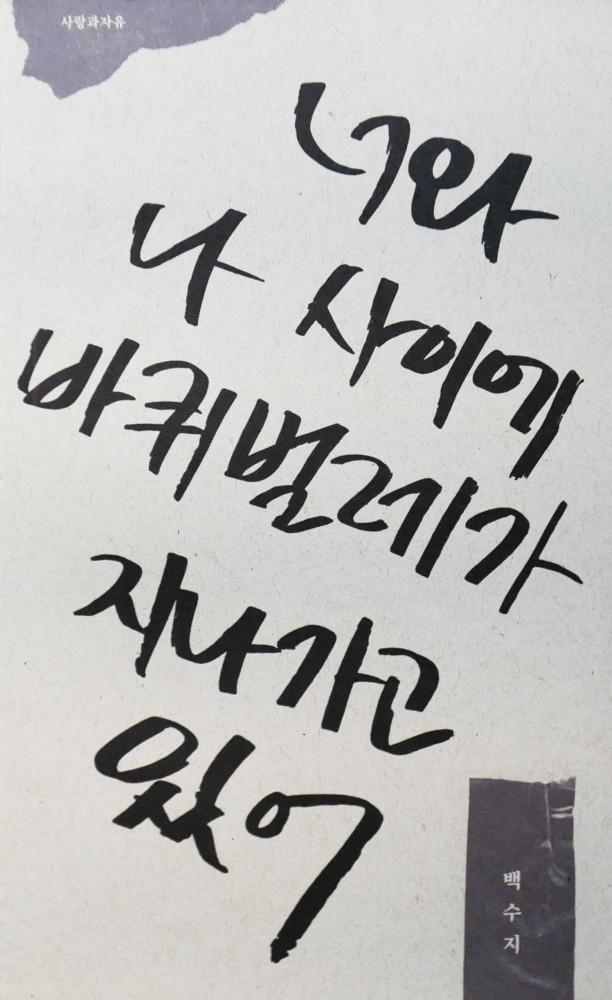 사랑과자유
너와
나 사이에
바퀴벌레가
지나가고
있어
백수지